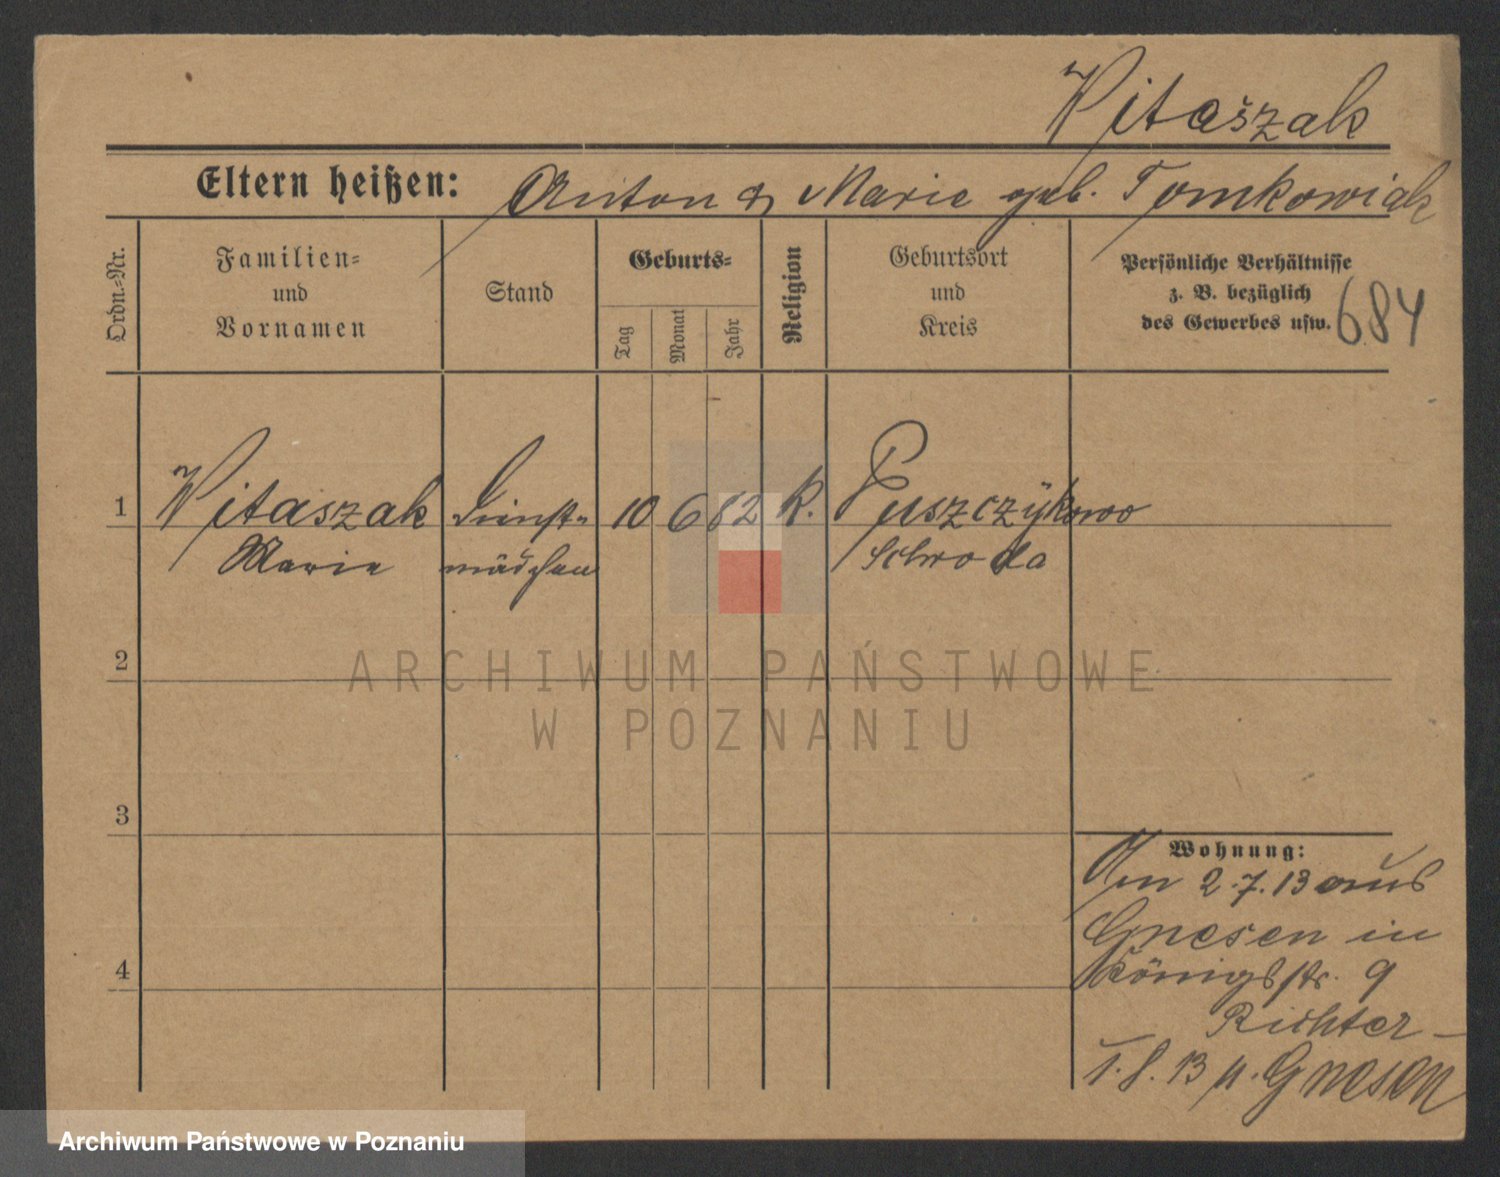 Witaszak
Eltern heißen: Anton & Marie geb. Tomkowiak
Ordn.-Nr.
Familien-
und
Vornamen
Stand
Geburts-
Tag
Monat
Jahr
Religion
Geburtsort
und
Kreis
Persönliche Verhältnisse
z. B. bezüglich
des Gewerbes usw.
684
1 Witaszak Dienst- 10 6 82 k. Puszczykowo
Marie mädchen Schroda
2
3
4
Wohnung:
Am 2.7.13 aus
Gnesen in
Königsstr. 9
Richter
1.8.13 n. Gnesen
ARCHIWUM PAŃSTWOWE
W POZNANIU
Archiwum Państwowe w Poznaniu